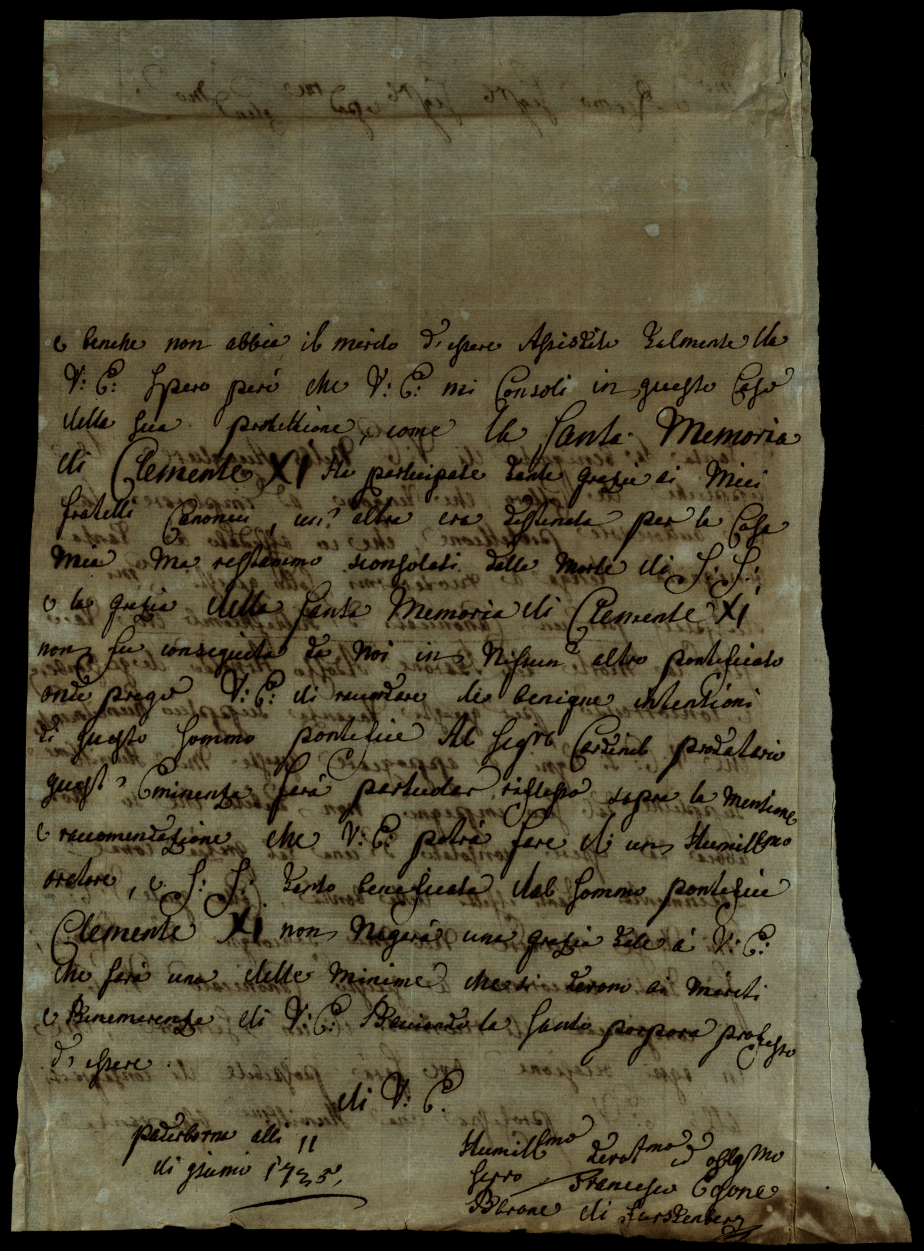 e benche non abbia il merito d'essere Assistito talmente da
V: E: spero però che V: E: mi Consoli in questo Caso
della sua protettione, come la Santa Memoria
di Clemente XI Ha participate tante grazie ai Miei
fratelli Canonici, un' altra era destinata per la Casa
mia Ma restassimo sconsolati dalla Morte di S: S:
e la grazia della Santa Memoria di Clemente XI
non fu conseguita da Noi in Nissun altro pontificato
onde prego V: E: di ricordare le benigne intentioni
di questo Sommo pontefice Al Sigre Cardinal prodatario
quest' Eminenza farà particolar riflesso sopra la mentione
e raccomendazione che V: E: potrà fare di un Humillmo
oratore, e S: S: tanto beneficata dal Sommo pontefice
Clemente XI non Negerà una grazia tale à V: E:
che serà una delle minime che si devono ai meriti
e Benemerenze di V: E: Baciando la Santa porpora professo
d' essere
di V: E:
paderborna alli 11
di giunio 1725
Humillmo devotmo ed obligmo
servo Francesco Egone
Barone di Furstenberg